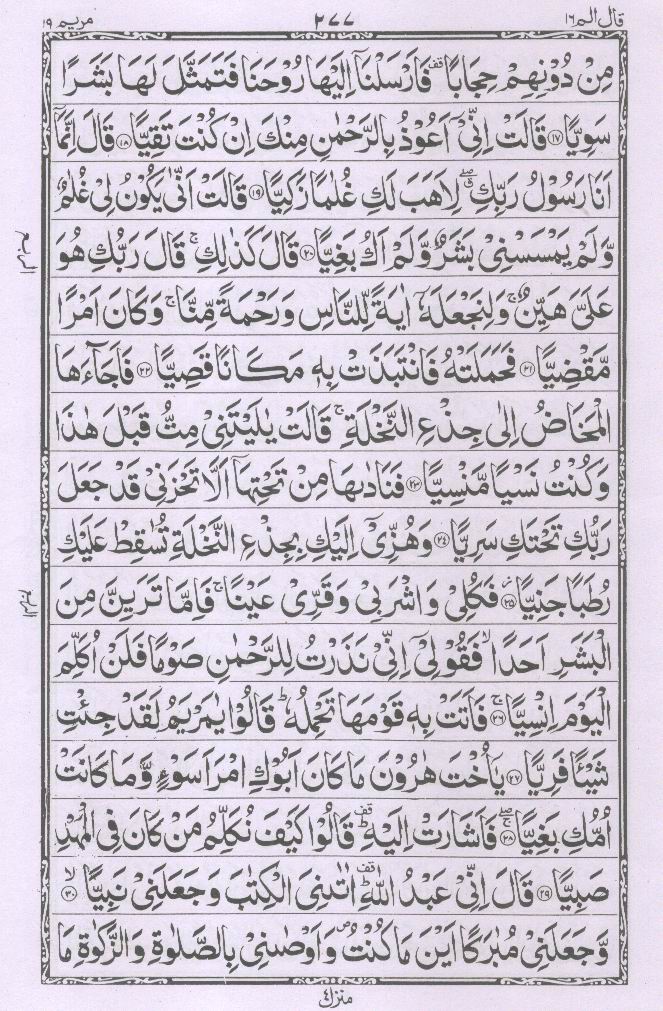 قال الم ١٦
٢٧٧
مريم ١٩
مِنْ دُوْنِهِمْ حِجَابًا ۪قف فَاَرْسَلْنَاۤ اِلَيْهَا رُوْحَنَا فَتَمَثَّلَ لَهَا بَشَرًا
سَوِيًّا ۝١٧ قَالَتْ اِنِّىْۤ اَعُوْذُ بِالرَّحْمٰنِ مِنْكَ اِنْ كُنْتَ تَقِيًّا ۝١٨ قَالَ اِنَّمَاۤ
اَنَا رَسُوْلُ رَبِّكِ ۖق لِاَهَبَ لَكِ غُلٰمًا زَكِيًّا ۝١٩ قَالَتْ اَنّٰى يَكُوْنُ لِىْ غُلٰمٌ
وَّلَمْ يَمْسَسْنِىْ بَشَرٌ وَّلَمْ اَكُ بَغِيًّا ۝٢٠ قَالَ كَذٰلِكِ ۚ قَالَ رَبُّكِ هُوَ
عَلَىَّ هَيِّنٌ ۚ وَلِنَجْعَلَهٗۤ اٰيَةً لِّلنَّاسِ وَرَحْمَةً مِّنَّا ۚ وَكَانَ اَمْرًا
مَّقْضِيًّا ۝٢١ فَحَمَلَتْهُ فَانْتَبَذَتْ بِهٖ مَكَانًا قَصِيًّا ۝٢٢ فَاَجَآءَهَا
الْمَخَاضُ اِلٰى جِذْعِ النَّخْلَةِ ۚ قَالَتْ يٰلَيْتَنِىْ مِتُّ قَبْلَ هٰذَا
وَكُنْتُ نَسْيًا مَّنْسِيًّا ۝٢٣ فَنَادٰىهَا مِنْ تَحْتِهَاۤ اَلَّا تَحْزَنِىْ قَدْ جَعَلَ
رَبُّكِ تَحْتَكِ سَرِيًّا ۝٢٤ وَهُزِّىْۤ اِلَيْكِ بِجِذْعِ النَّخْلَةِ تُسٰقِطْ عَلَيْكِ
رُطَبًا جَنِيًّا ۝٢٥ فَكُلِىْ وَاشْرَبِىْ وَقَرِّىْ عَيْنًا ۚ فَاِمَّا تَرَيِنَّ مِنَ
الْبَشَرِ اَحَدًا ۙ فَقُوْلِىْۤ اِنِّىْ نَذَرْتُ لِلرَّحْمٰنِ صَوْمًا فَلَنْ اُكَلِّمَ
الْيَوْمَ اِنْسِيًّا ۚ۝٢٦ فَاَتَتْ بِهٖ قَوْمَهَا تَحْمِلُهٗ ؕ قَالُوْا يٰمَرْيَمُ لَقَدْ جِئْتِ
شَيْـًٔا فَرِيًّا ۝٢٧ يٰۤاُخْتَ هٰرُوْنَ مَا كَانَ اَبُوْكِ امْرَاَ سَوْءٍ وَّمَا كَانَتْ
اُمُّكِ بَغِيًّا ۖۚ۝٢٨ فَاَشَارَتْ اِلَيْهِ ؕقف قَالُوْا كَيْفَ نُكَلِّمُ مَنْ كَانَ فِى الْمَهْدِ
صَبِيًّا ۝٢٩ قَالَ اِنِّىْ عَبْدُ اللّٰهِ ؕقف اٰتٰىنِىَ الْكِتٰبَ وَجَعَلَنِىْ نَبِيًّا ۙ۝٣٠
وَّجَعَلَنِىْ مُبٰرَكًا اَيْنَ مَا كُنْتُ ۪ص وَاَوْصٰنِىْ بِالصَّلٰوةِ وَالزَّكٰوةِ مَا
منزل ٤